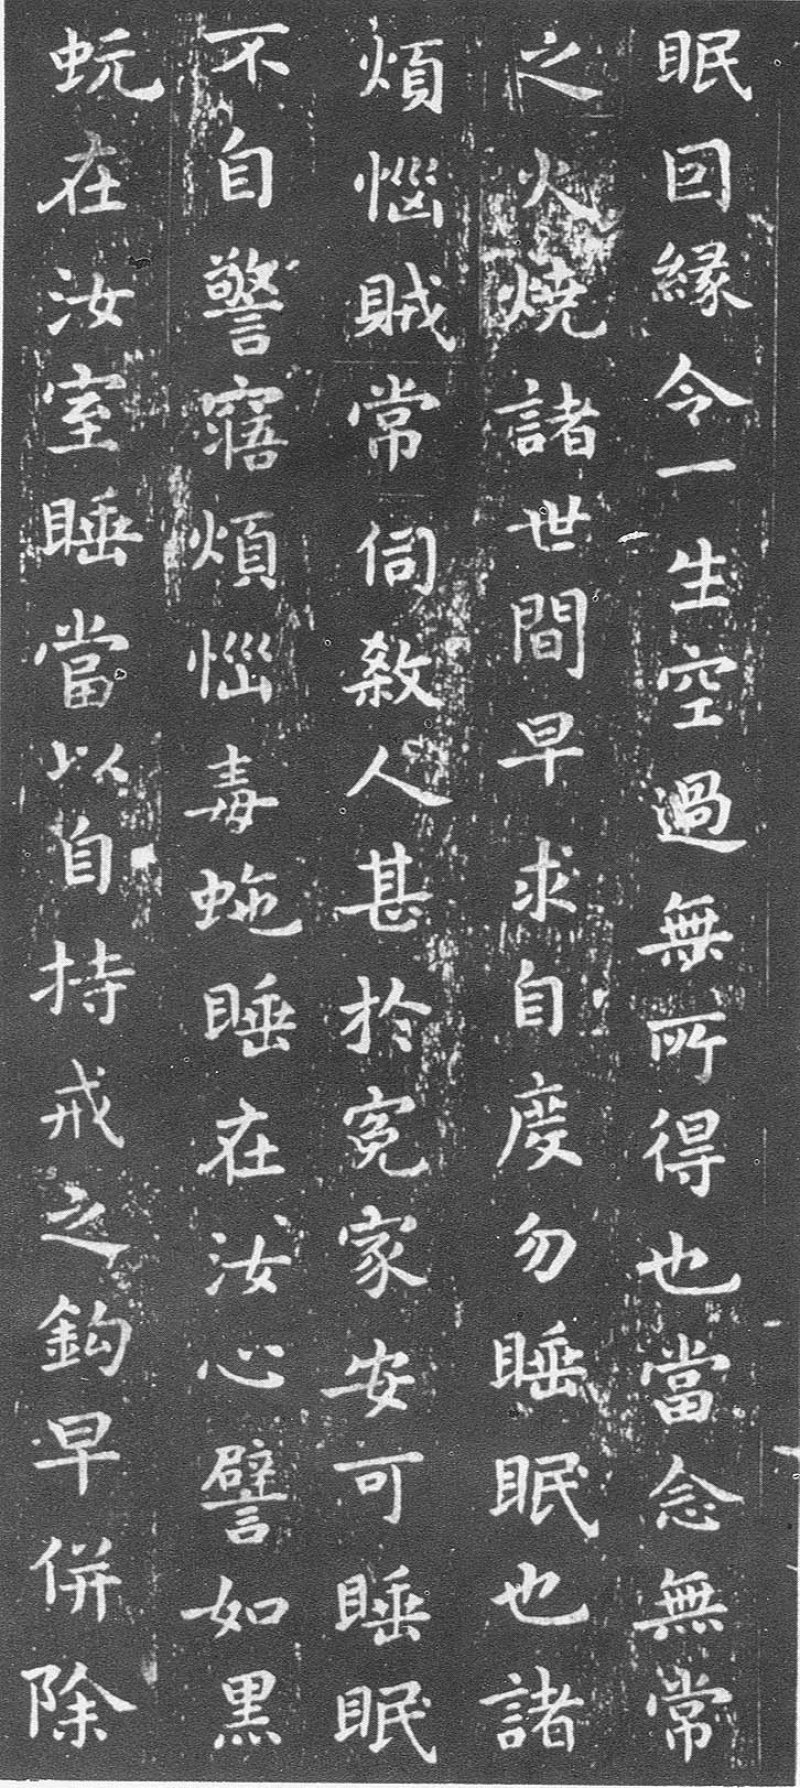 眠因縁令一生空過無所得也當念無常
之火燒諸世間早求自度勿睡眠也諸
煩惱賊常伺殺人甚於冤家安可睡眠
不自警寤煩惱毒虵睡在汝心譬如黒
蚖在汝室睡當以自持戒之鈎早併除